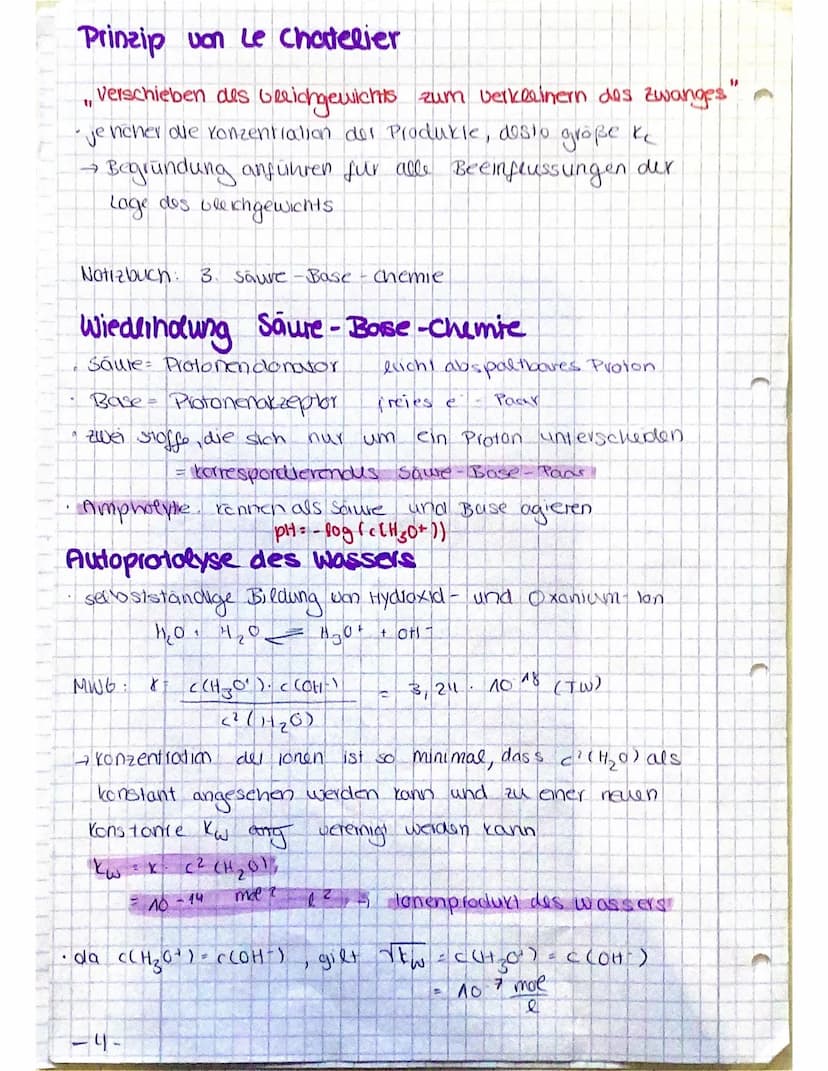 Prinzip von Le Chatelier
„Verschieben des Gleichgewichts zum verkleinern des Zwanges"
· je höher die Konzentration der Produkte, desto größe Kc
→ Begründung anführen für alle Beeinflussungen der
Lage des Gleichgewichts
Notizbuch: 3. Säure-Base-Chemie
Wiederholung Säure-Base-Chemie
· Säure = Protonendonator leicht abspaltbares Proton
· Base = Protonenakzeptor freies e⁻ - Paar
· zwei Stoffe, die sich nur um ein Proton unterscheiden
= korrespondierendes Säure-Base-Paar
· Ampholyte: können als Säure und Base agieren
pH = -log(c(H₃O+))
Autoprotolyse des Wassers
· selbstständige Bildung von Hydroxid- und Oxonium-Ion
H₂O + H₂O ⇌ H₃O⁺ + OH⁻
MWG: K = c(H₃O⁺)·c(OH⁻) = 3,24 · 10⁻¹⁸ (TW)
c²(H₂O)
→ Konzentration der Ionen ist so minimal, dass c²(H₂O) als
konstant angesehen werden kann und zu einer neuen
Konstante Kw vereinigt werden kann
Kw = K · c²(H₂O)
= 10⁻¹⁴ mol² l² → Ionenprodukt des Wassers
· da c(H₃O⁺) = c(OH⁻), gilt √Kw = c(H₃O⁺) = c(OH⁻)
= 10⁻⁷ mol
l
-4-